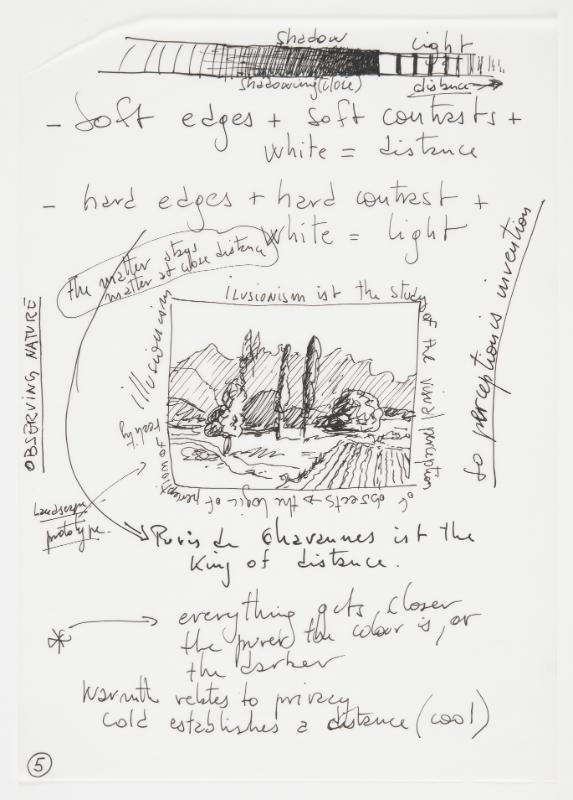 Shadow Light
Shadowing (close) distance
- Soft edges + Soft contrasts +
White = distance
- hard edges + hard contrast +
White = light
the matter stays
matter at close distance
OBSERVING NATURE
illusionism
ilusionism ist the study
of the visual perception
of objects → the logic of percept.
reality
so perception is invention
Landscape
prototype.
Puvis de Chavannes ist the
King of distance.
everything gets closer
the purer the colour is, or
the darker
Warmth relates to privacy
Cold establishes a distance (cool)
5